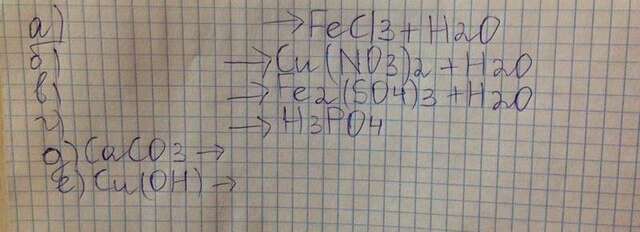 а) → FeCl3 + H2O
б) → Cu(NO3)2 + H2O
в) → Fe2(SO4)3 + H2O
г) → H3PO4
д) CaCO3 →
е) Cu(OH) →